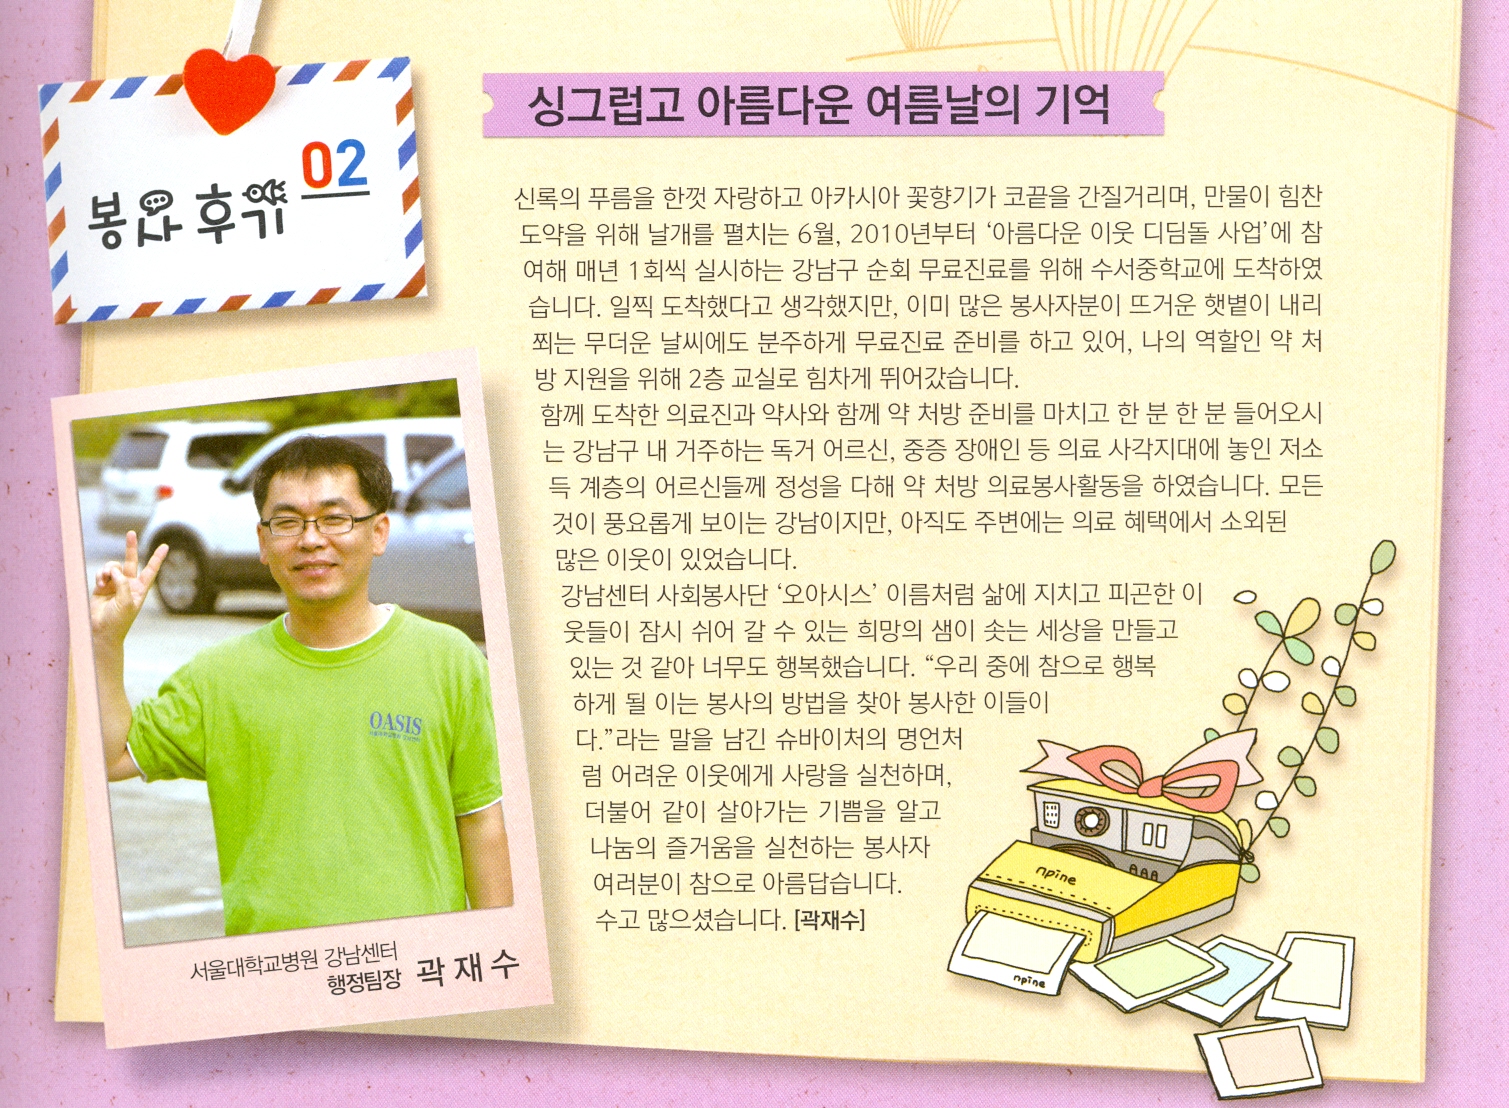 봉사 후기 02
싱그럽고 아름다운 여름날의 기억
신록의 푸름을 한껏 자랑하고 아카시아 꽃향기가 코끝을 간질거리며, 만물이 힘찬
도약을 위해 날개를 펼치는 6월, 2010년부터 ‘아름다운 이웃 디딤돌 사업’에 참
여해 매년 1회씩 실시하는 강남구 순회 무료진료를 위해 수서중학교에 도착하였
습니다. 일찍 도착했다고 생각했지만, 이미 많은 봉사자분이 뜨거운 햇볕이 내리
쬐는 무더운 날씨에도 분주하게 무료진료 준비를 하고 있어, 나의 역할인 약 처
방 지원을 위해 2층 교실로 힘차게 뛰어갔습니다.
함께 도착한 의료진과 약사와 함께 약 처방 준비를 마치고 한 분 한 분 들어오시
는 강남구 내 거주하는 독거 어르신, 중증 장애인 등 의료 사각지대에 놓인 저소
득 계층의 어르신들께 정성을 다해 약 처방 의료봉사활동을 하였습니다. 모든
것이 풍요롭게 보이는 강남이지만, 아직도 주변에는 의료 혜택에서 소외된
많은 이웃이 있었습니다.
강남센터 사회봉사단 ‘오아시스’ 이름처럼 삶에 지치고 피곤한 이
웃들이 잠시 쉬어 갈 수 있는 희망의 샘이 솟는 세상을 만들고
있는 것 같아 너무도 행복했습니다. “우리 중에 참으로 행복
하게 될 이는 봉사의 방법을 찾아 봉사한 이들이
다.”라는 말을 남긴 슈바이처의 명언처
럼 어려운 이웃에게 사랑을 실천하며,
더불어 같이 살아가는 기쁨을 알고
나눔의 즐거움을 실천하는 봉사자
여러분이 참으로 아름답습니다.
수고 많으셨습니다. [곽재수]
OASIS
서울대학교병원 강남센터
서울대학교병원 강남센터
행정팀장 곽재수
npine
npine